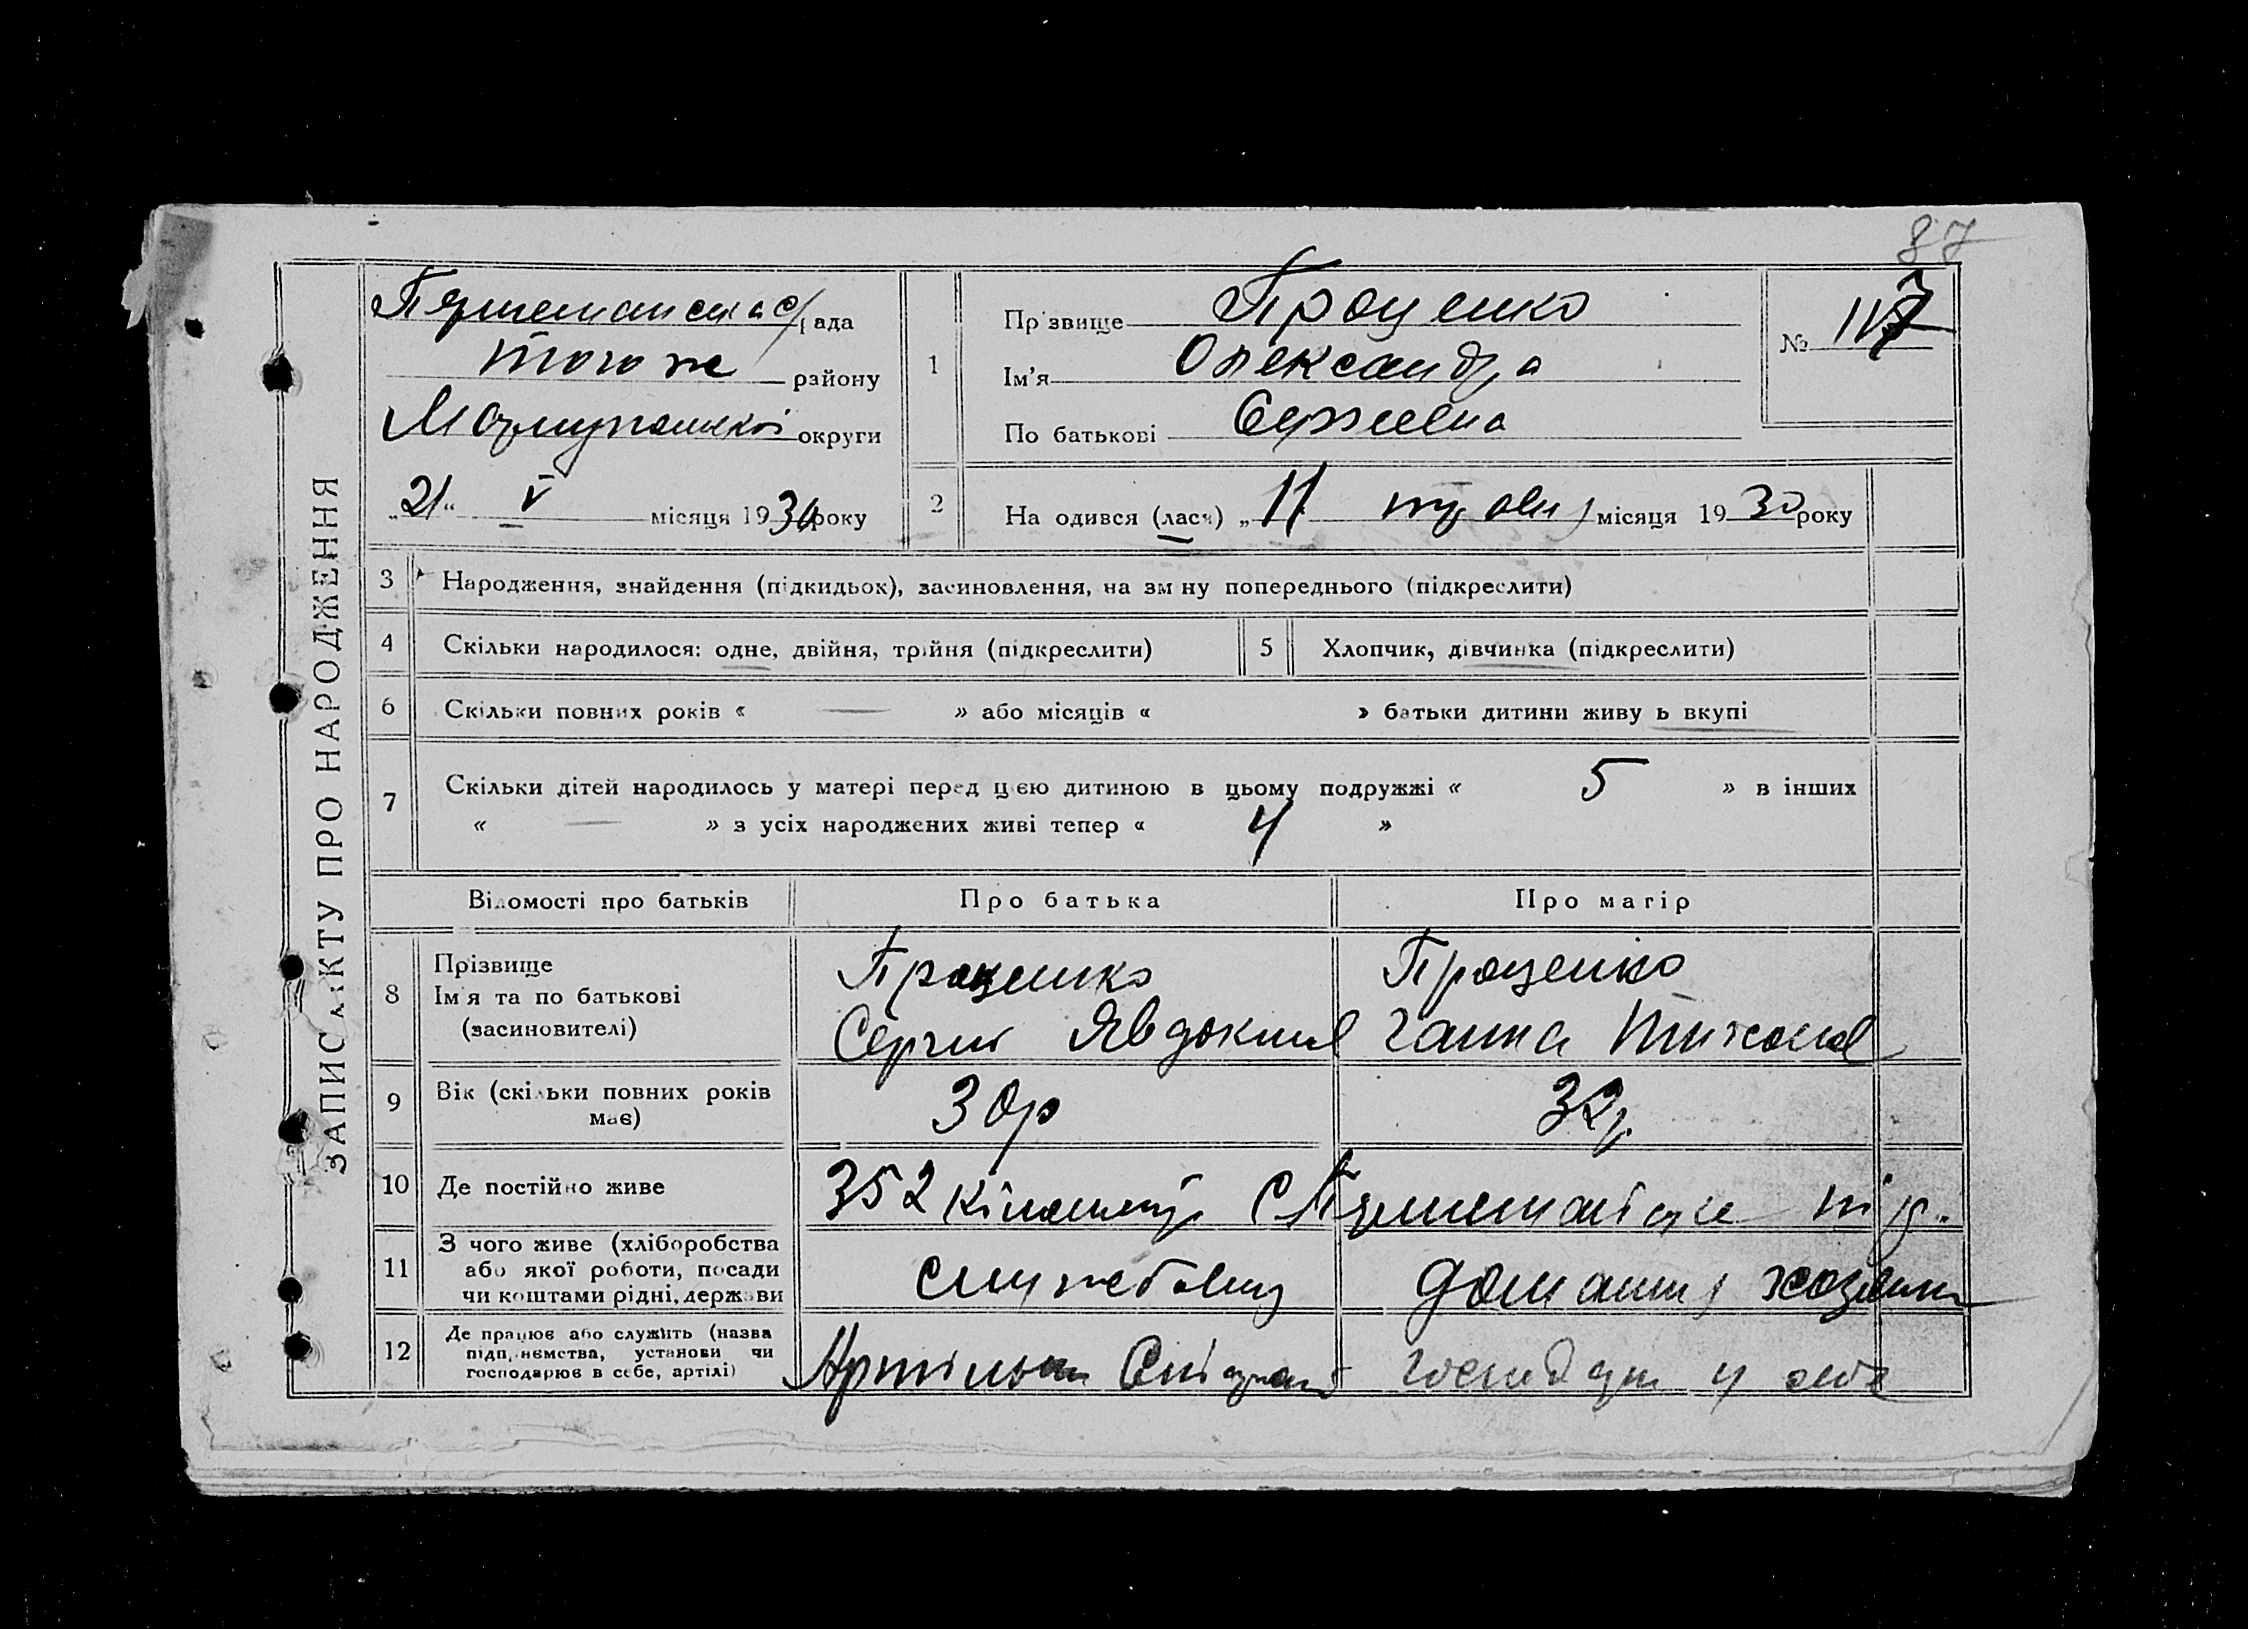 87
ЗАПИС АКТУ ПРО НАРОДЖЕННЯ
рада
того ж району
округи
„21“ V місяця 1930 року
1
Прізвище Проценко
Ім’я Олександра
По батькові Сергиевна
№ 117
2 На одився (лася) „11 травня місяця 1930 року
3 Народження, знайдення (підкидьох), засиновлення, на зміну попереднього (підкреслити)
4 Скільки народилося: одне, двійня, трійня (підкреслити) 5 Хлопчик, дівчинка (підкреслити)
6 Скільки повних років « — » або місяців « » батьки дитини живуть вкупі
7 Скільки дітей народилось у матері перед цією дитиною в цьому подружжі « 5 » в інших
« — » з усіх народжених живі тепер « 4 »
Відомості про батьків Про батька Про матір
8 Прізвище
Ім’я та по батькові
(засиновителі)
Проценко
Сергий Явдоким
Проценко
Ганна Тихонов
9 Вік (скільки повних років
має)
30р
32р.
10 Де постійно живе 352 кілометр
11 З чого живе (хліборобства
або якої роботи, посади
чи коштами рідні, держави
службовец
домашня хозяйка
12 Де працює або служить (назва
підприємства, установи чи
господарює в себе, артілі)
у себе